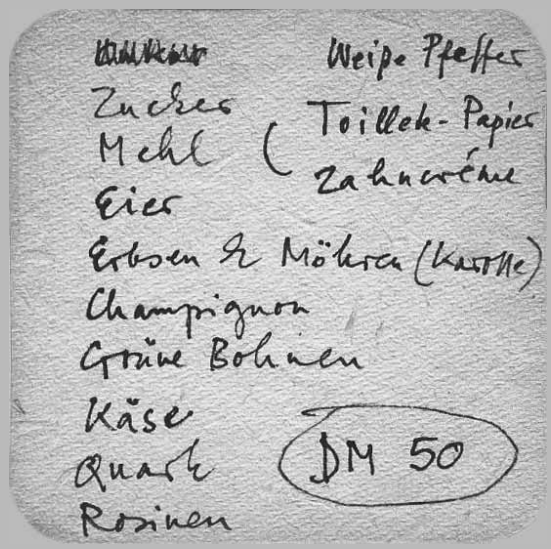 Zucker
Mehl
Eier
Erbsen & Möhren (Karotte)
Champignon
Grüne Bohnen
Käse
Quark
Rosinen
Weiße Pfeffer
Toillek-Papier
Zahncréme
DM 50